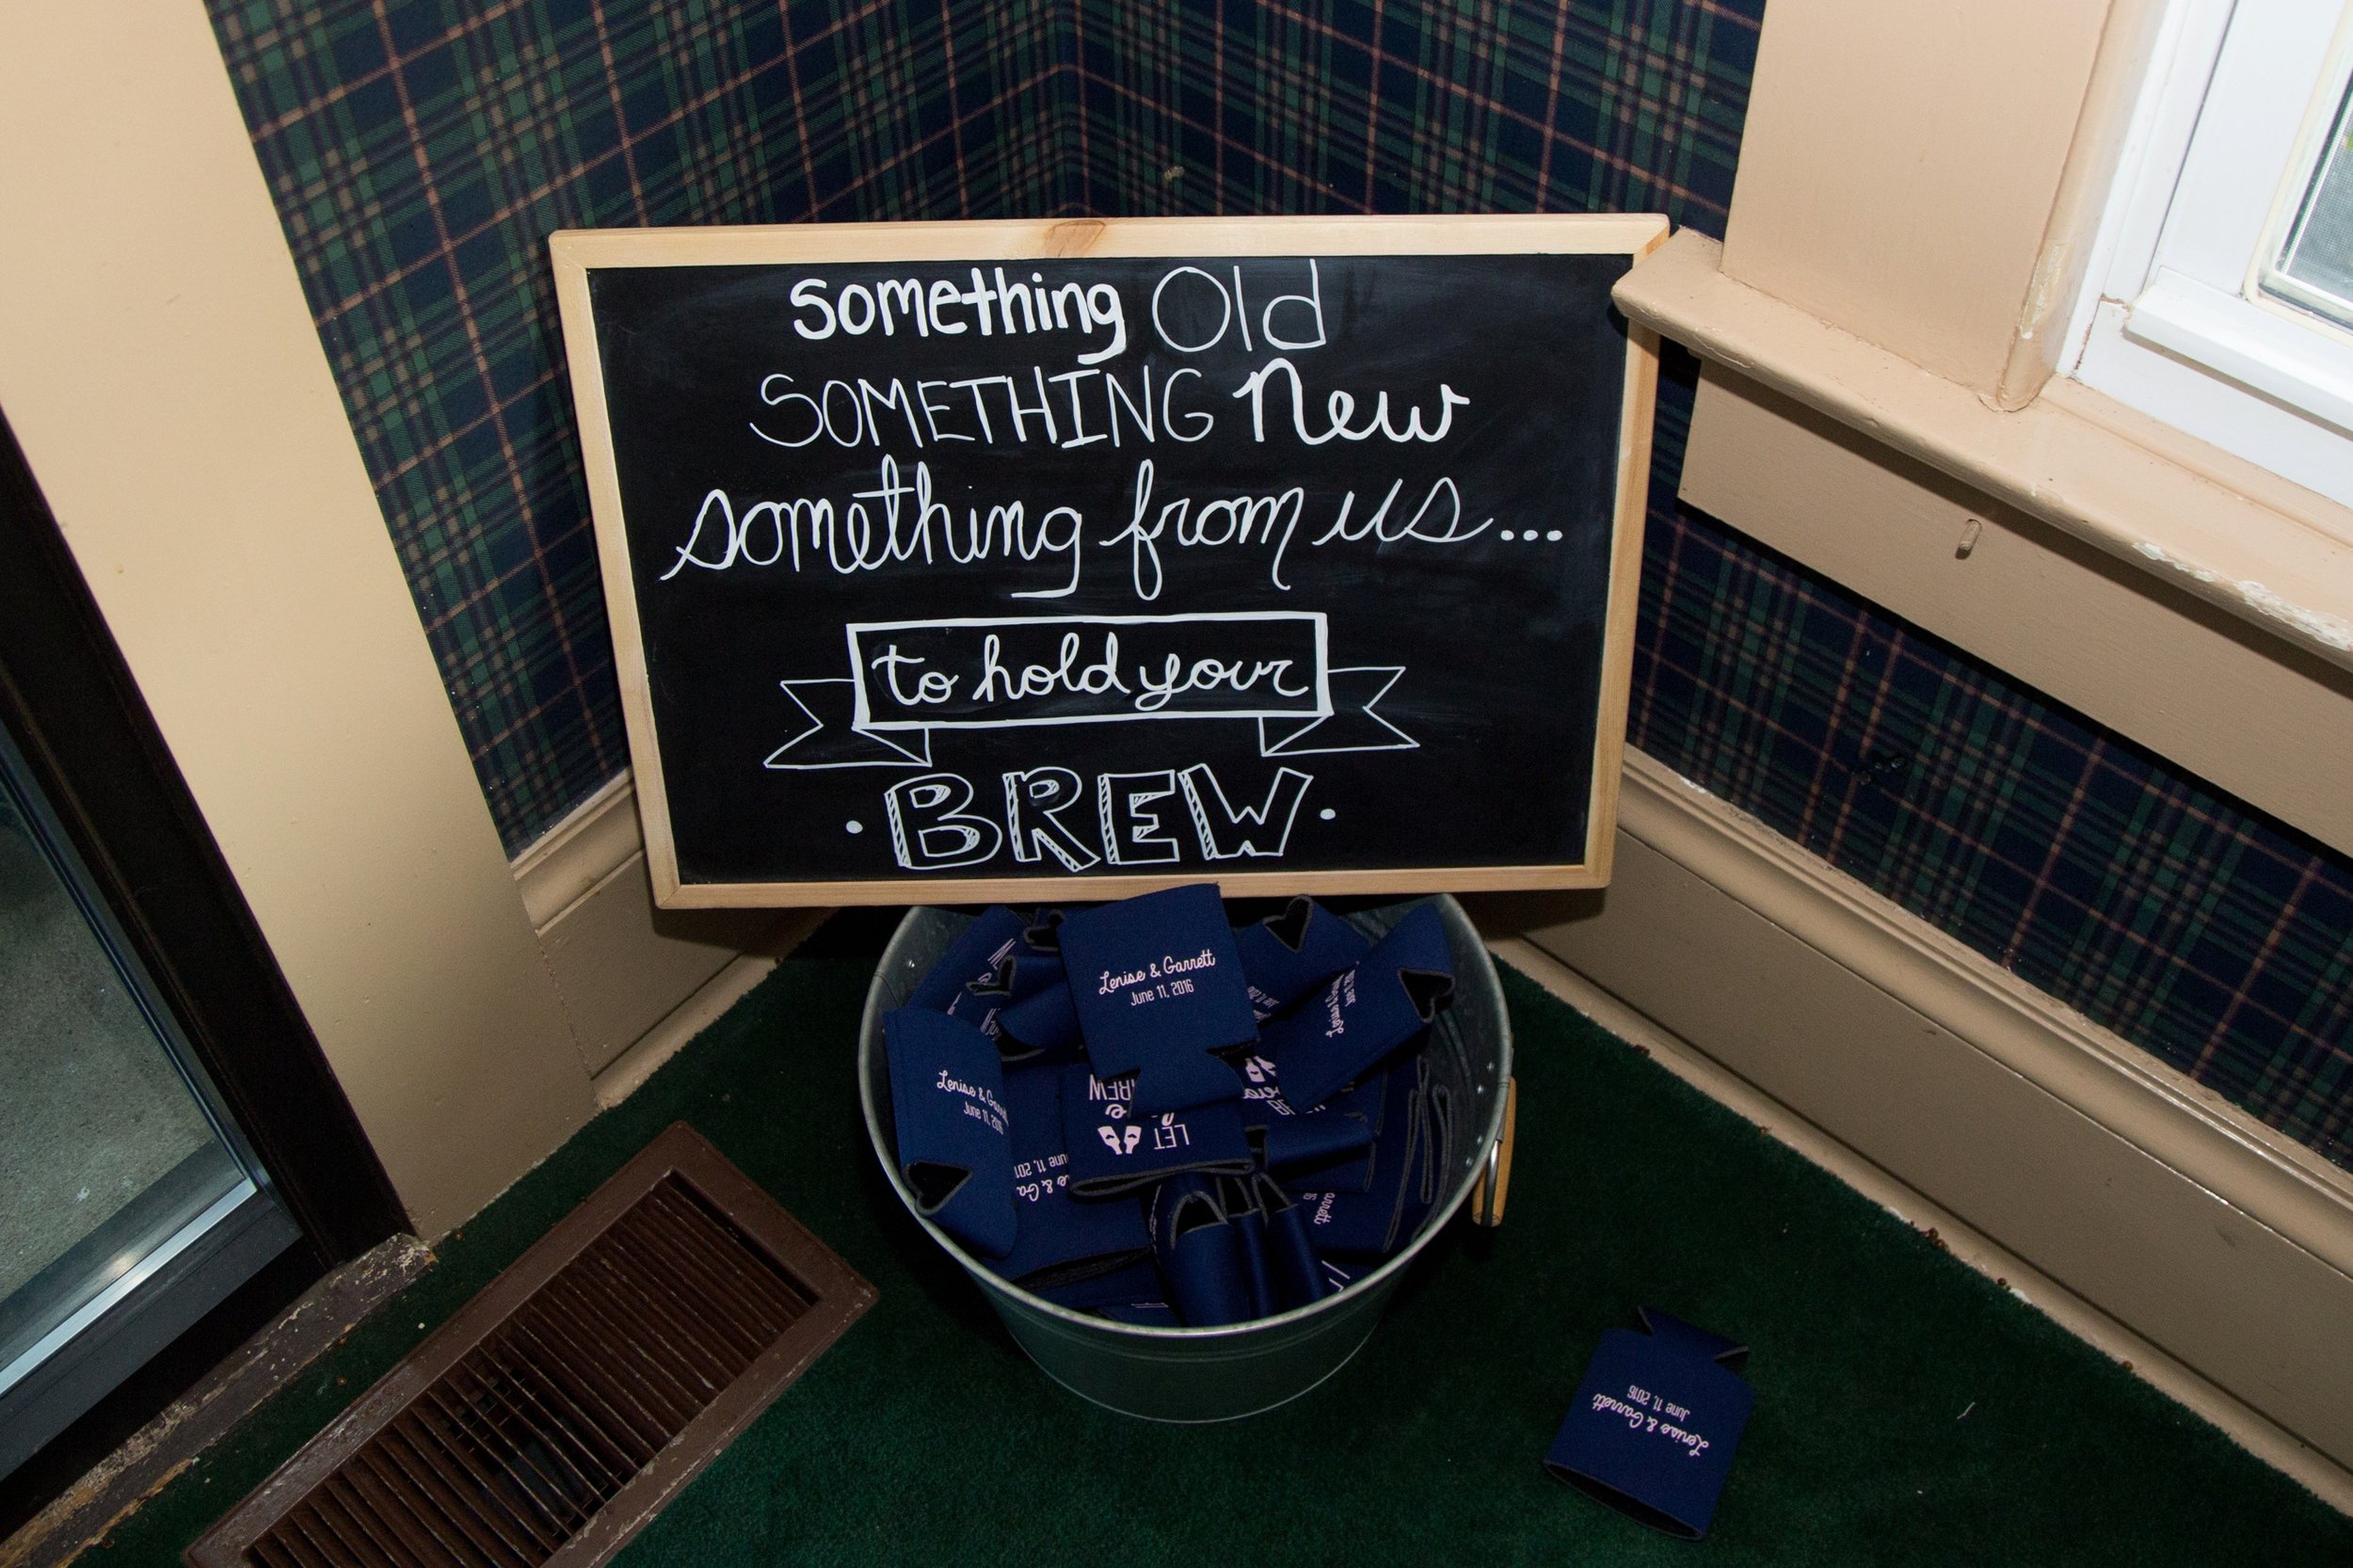 something Old
SOMETHING new
something from us...
to hold your
• BREW •
Lenise & Garrett
June 11, 2016
Lenise & Garr
June 11, 201
BREW
LET
June 11, 201
se & Ga
arrett
Lenise & Garrett
June 11, 2016